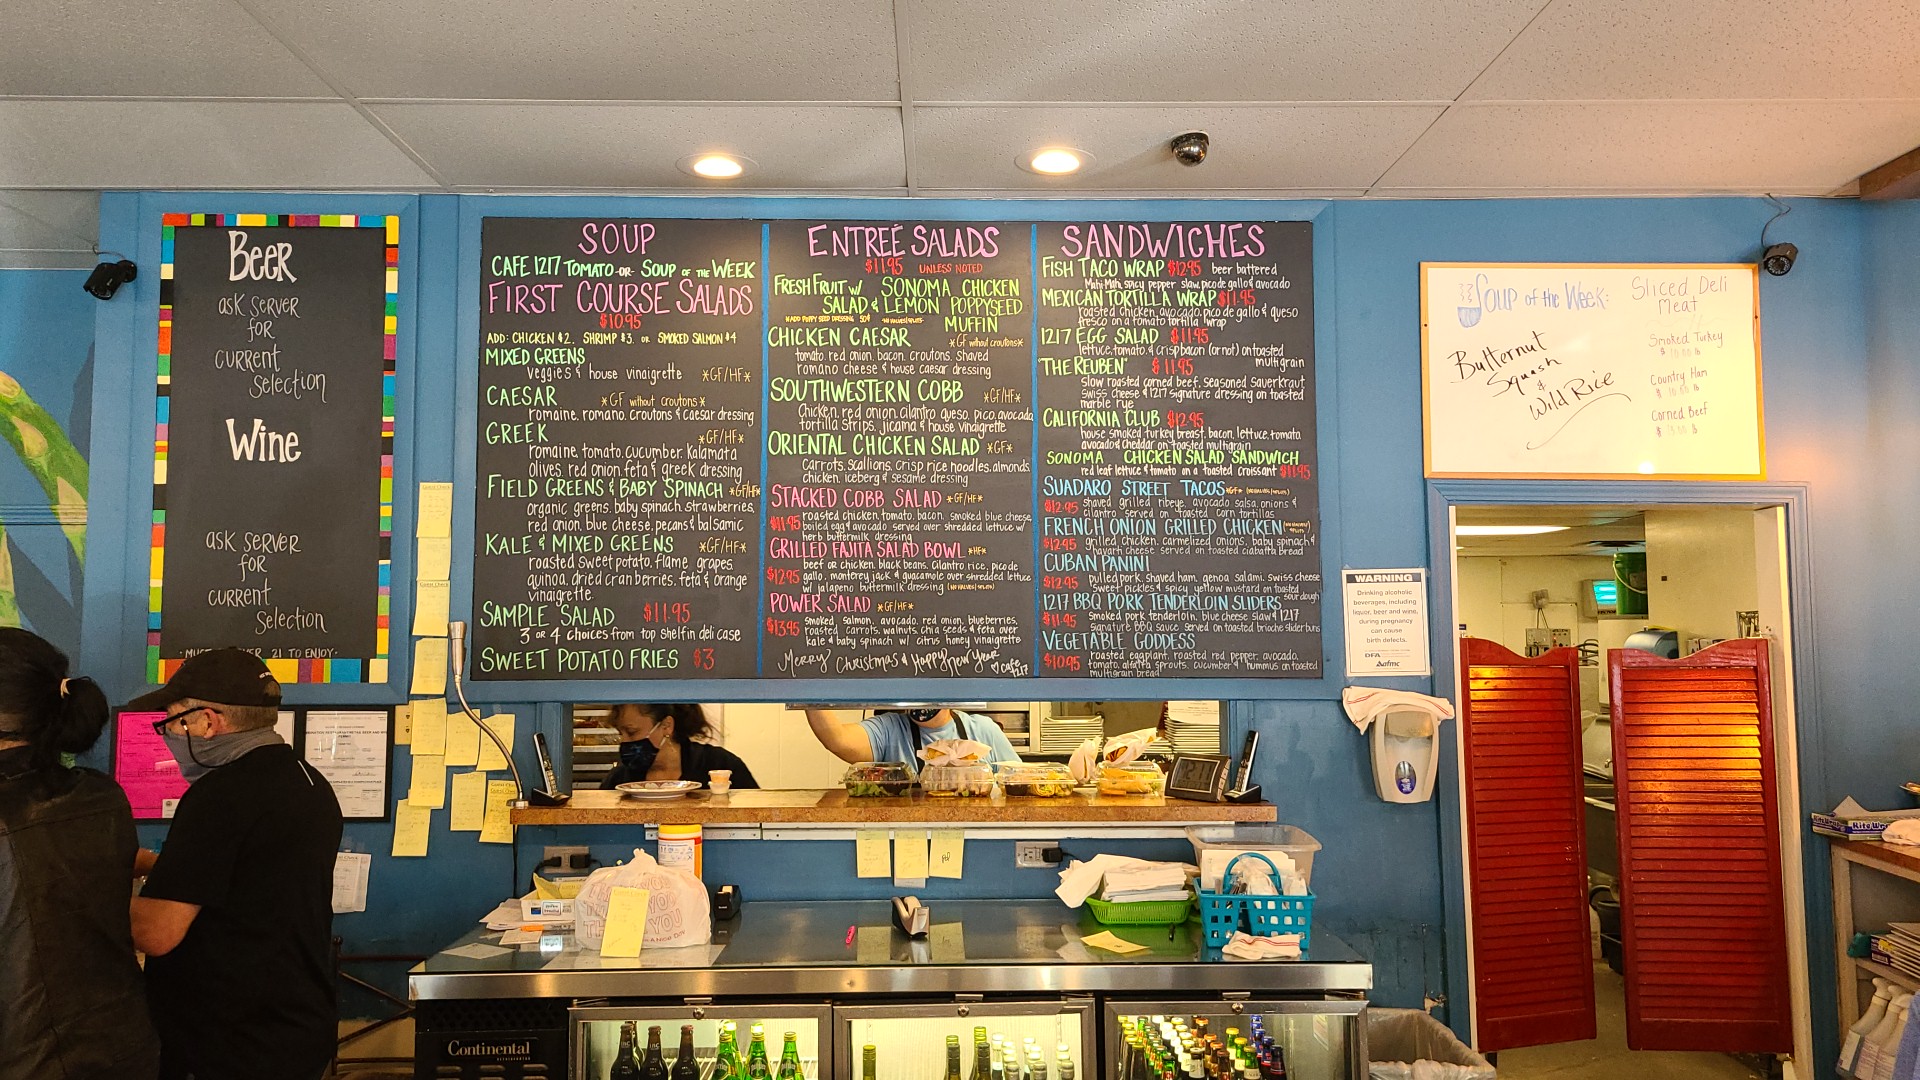 Beer
ask server
for
current
selection
Wine
ask server
for
current
Selection
21 TO ENJOY
SOUP
CAFE 1217 TOMATO -OR- SOUP OF THE WEEK
FIRST COURSE SALADS
$10.95
ADD: CHICKEN $2. SHRIMP $3. OR SMOKED SALMON $4
MIXED GREENS
veggies & house vinaigrette *GF/HF*
CAESAR *GF without croutons*
romaine, romano, croutons & caesar dressing
GREEK *GF/HF*
romaine, tomato, cucumber, kalamata
olives, red onion, feta & greek dressing
FIELD GREENS & BABY SPINACH *GF/HF*
organic greens, baby spinach, strawberries,
red onion, blue cheese, pecans & balsamic
KALE & MIXED GREENS *GF/HF*
roasted sweet potato, flame grapes,
quinoa, dried cranberries, feta & orange
vinaigrette
SAMPLE SALAD $11.95
3 OR 4 choices from top shelf in deli case
SWEET POTATO FRIES $3
ENTREÉ SALADS
$11.95 UNLESS NOTED
FRESH FRUIT W/ SONOMA CHICKEN
SALAD & LEMON POPPYSEED
MUFFIN
ADD POPPY SEED DRESSING 50¢
CHICKEN CAESAR *GF without croutons*
tomato, red onion, bacon, croutons, shaved
romano cheese & house caesar dressing
SOUTHWESTERN COBB *GF/HF*
Chicken, red onion, cilantro, queso, pico, avocado,
tortilla strips, jicama & house vinaigrette
ORIENTAL CHICKEN SALAD *GF*
Carrots, scallions, crisp rice noodles, almonds,
chicken, iceberg & sesame dressing
STACKED COBB SALAD *GF/HF*
$11.95 roasted chicken, tomato, bacon, smoked blue cheese,
boiled egg & avocado served over shredded lettuce w/
herb buttermilk dressing
GRILLED FAJITA SALAD BOWL *HF*
$12.95 beef or chicken, black beans, cilantro rice, pico de
gallo, monterey jack & guacamole over shredded lettuce
w/ jalapeno buttermilk dressing
POWER SALAD *GF/HF*
$13.95 smoked salmon, avocado, red onion, blueberries,
roasted carrots, walnuts, chia seeds & feta over
kale & baby spinach w/ citrus honey vinaigrette
Merry Christmas & Happy New Year
cafe
1217
SANDWICHES
FISH TACO WRAP $12.95 beer battered
Mahi-Mahi, spicy pepper slaw, pico de gallo & avocado
MEXICAN TORTILLA WRAP $11.95
roasted chicken, avocado, pico de gallo & queso
fresco on a tomato tortilla wrap
1217 EGG SALAD $11.95
lettuce, tomato, & crisp bacon (or not) on toasted
multigrain
"THE REUBEN" $11.95
slow roasted corned beef, seasoned sauerkraut,
swiss cheese & 1217 signature dressing on toasted
marble rye
CALIFORNIA CLUB $12.95
house smoked turkey breast, bacon, lettuce, tomato,
avocado & cheddar on toasted multigrain
SONOMA CHICKEN SALAD SANDWICH
red leaf lettuce & tomato on a toasted croissant $11.95
SUADARO STREET TACOS *GF*
$12.95 shaved grilled ribeye, avocado salsa, onions &
cilantro served on toasted corn tortillas
FRENCH ONION GRILLED CHICKEN
$12.95 grilled chicken, carmelized onions, baby spinach &
havarti cheese served on toasted ciabatta bread
CUBAN PANINI
$12.95 pulled pork, shaved ham, genoa salami, swiss cheese
sweet pickles & spicy yellow mustard on toasted
sourdough
1217 BBQ PORK TENDERLOIN SLIDERS
$11.95 smoked pork tenderloin, blue cheese slaw & 1217
signature BBQ sauce served on toasted brioche slider buns
VEGETABLE GODDESS
$10.95 roasted eggplant, roasted red pepper, avocado,
tomato, alfalfa sprouts, cucumber & hummus on toasted
multigrain bread
Soup of the Week:
Butternut
Squash
&
Wild Rice
Sliced Deli
Meat
Smoked Turkey
Country Ham
Corned Beef
WARNING
Drinking alcoholic
beverages, including
liquor, beer and wine,
during pregnancy
can cause
birth defects.
DFA
Guest Check
THANK YOU
Continental